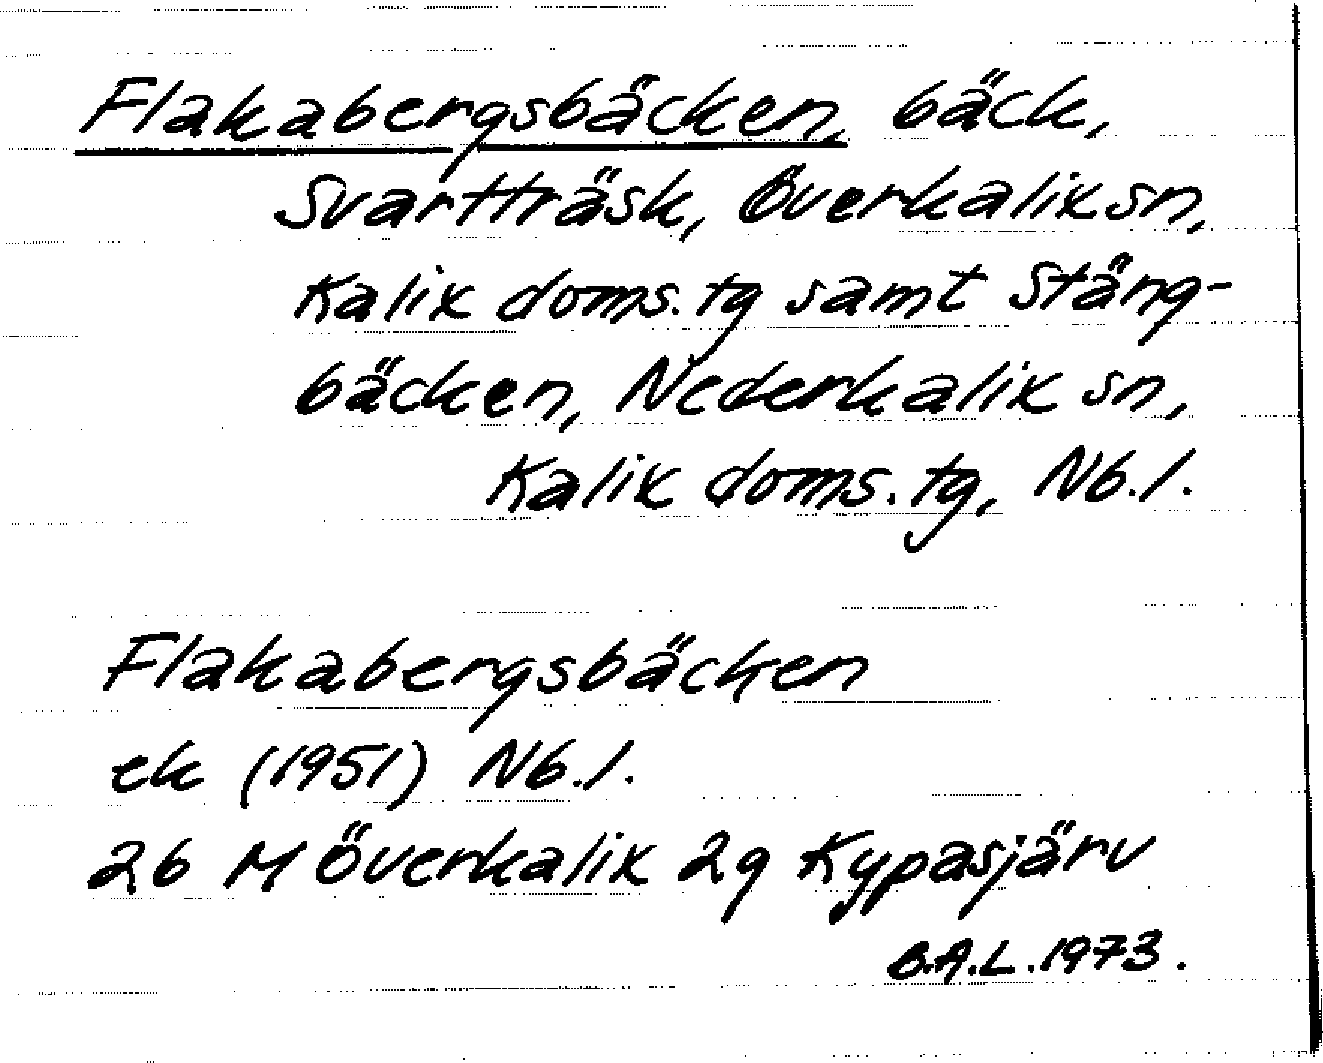 Flakabergsbäcken, bäck,
Svartträsk, Överkalix sn,
Kalix doms. tg samt Stäng-
bäcken, Nederkalix sn,
Kalix doms. tg, Nb. l.
Flakabergsbäcken
ek (1951) Nb. l.
26 M Överkalix 2g Kypasjärv
B.A.L. 1973.